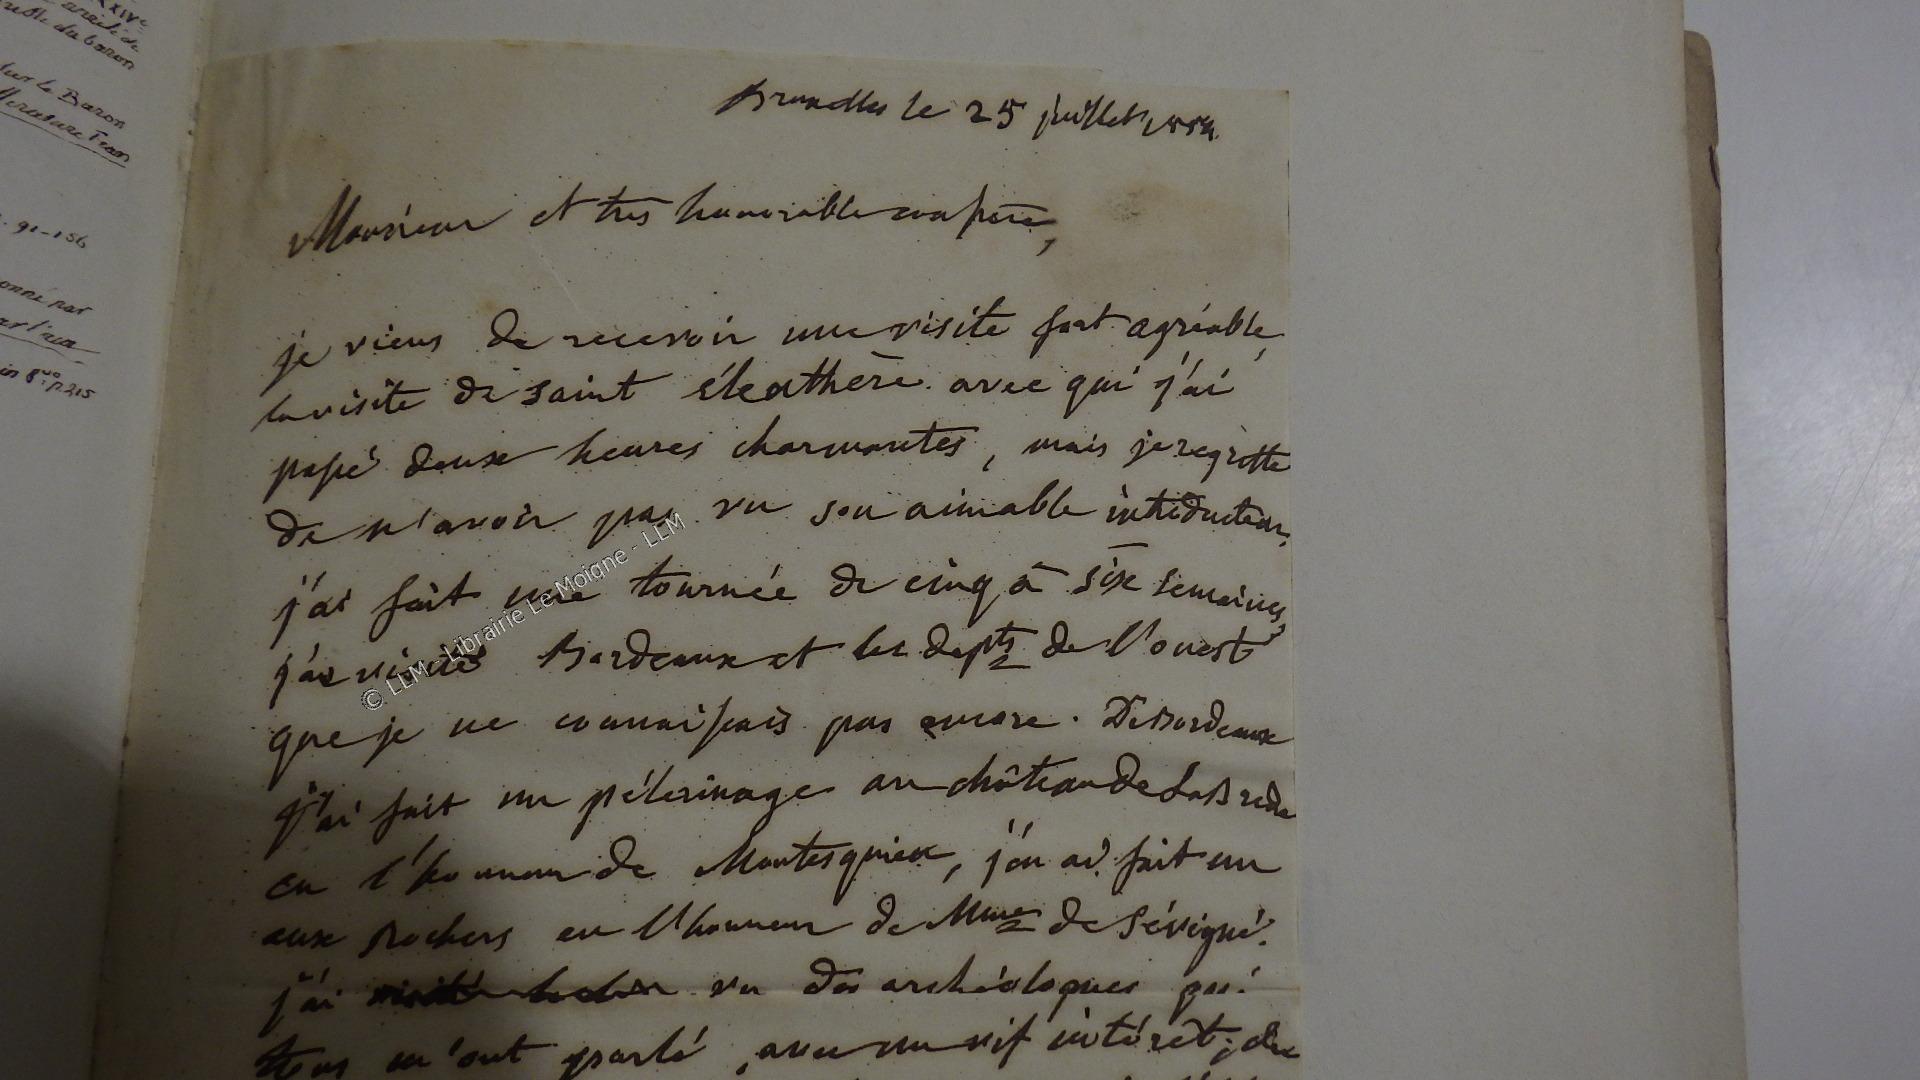 XXIVe
article de
du baron
sur le Baron
Mercure Fran
91-156
onné par
in 8vo p. 215
Bruxelles le 25 juillet 1884.
Monsieur et très honorable confrère,
je viens de recevoir une visite fort agréable,
la visite de Saint éleuthère avec qui j'ai
passé deux heures charmantes, mais je regrette
de n'avoir pas vu son aimable introducteur.
j'ai fait une tournée de cinq à six semaines,
j'ai visité Bordeaux et les depts de l'ouest
que je ne connaissais pas encore. De Bordeaux
j'ai fait un pélerinage au château de La Brede
en l'honneur de Montesquieu, j'en ai fait un
aux Rochers en l'honneur de Mme de Sévigné.
j'ai vu des archéologues qui
tous m'ont parlé, avec un vif intérêt, des
© LLM - Librairie Le Moigne - LLM